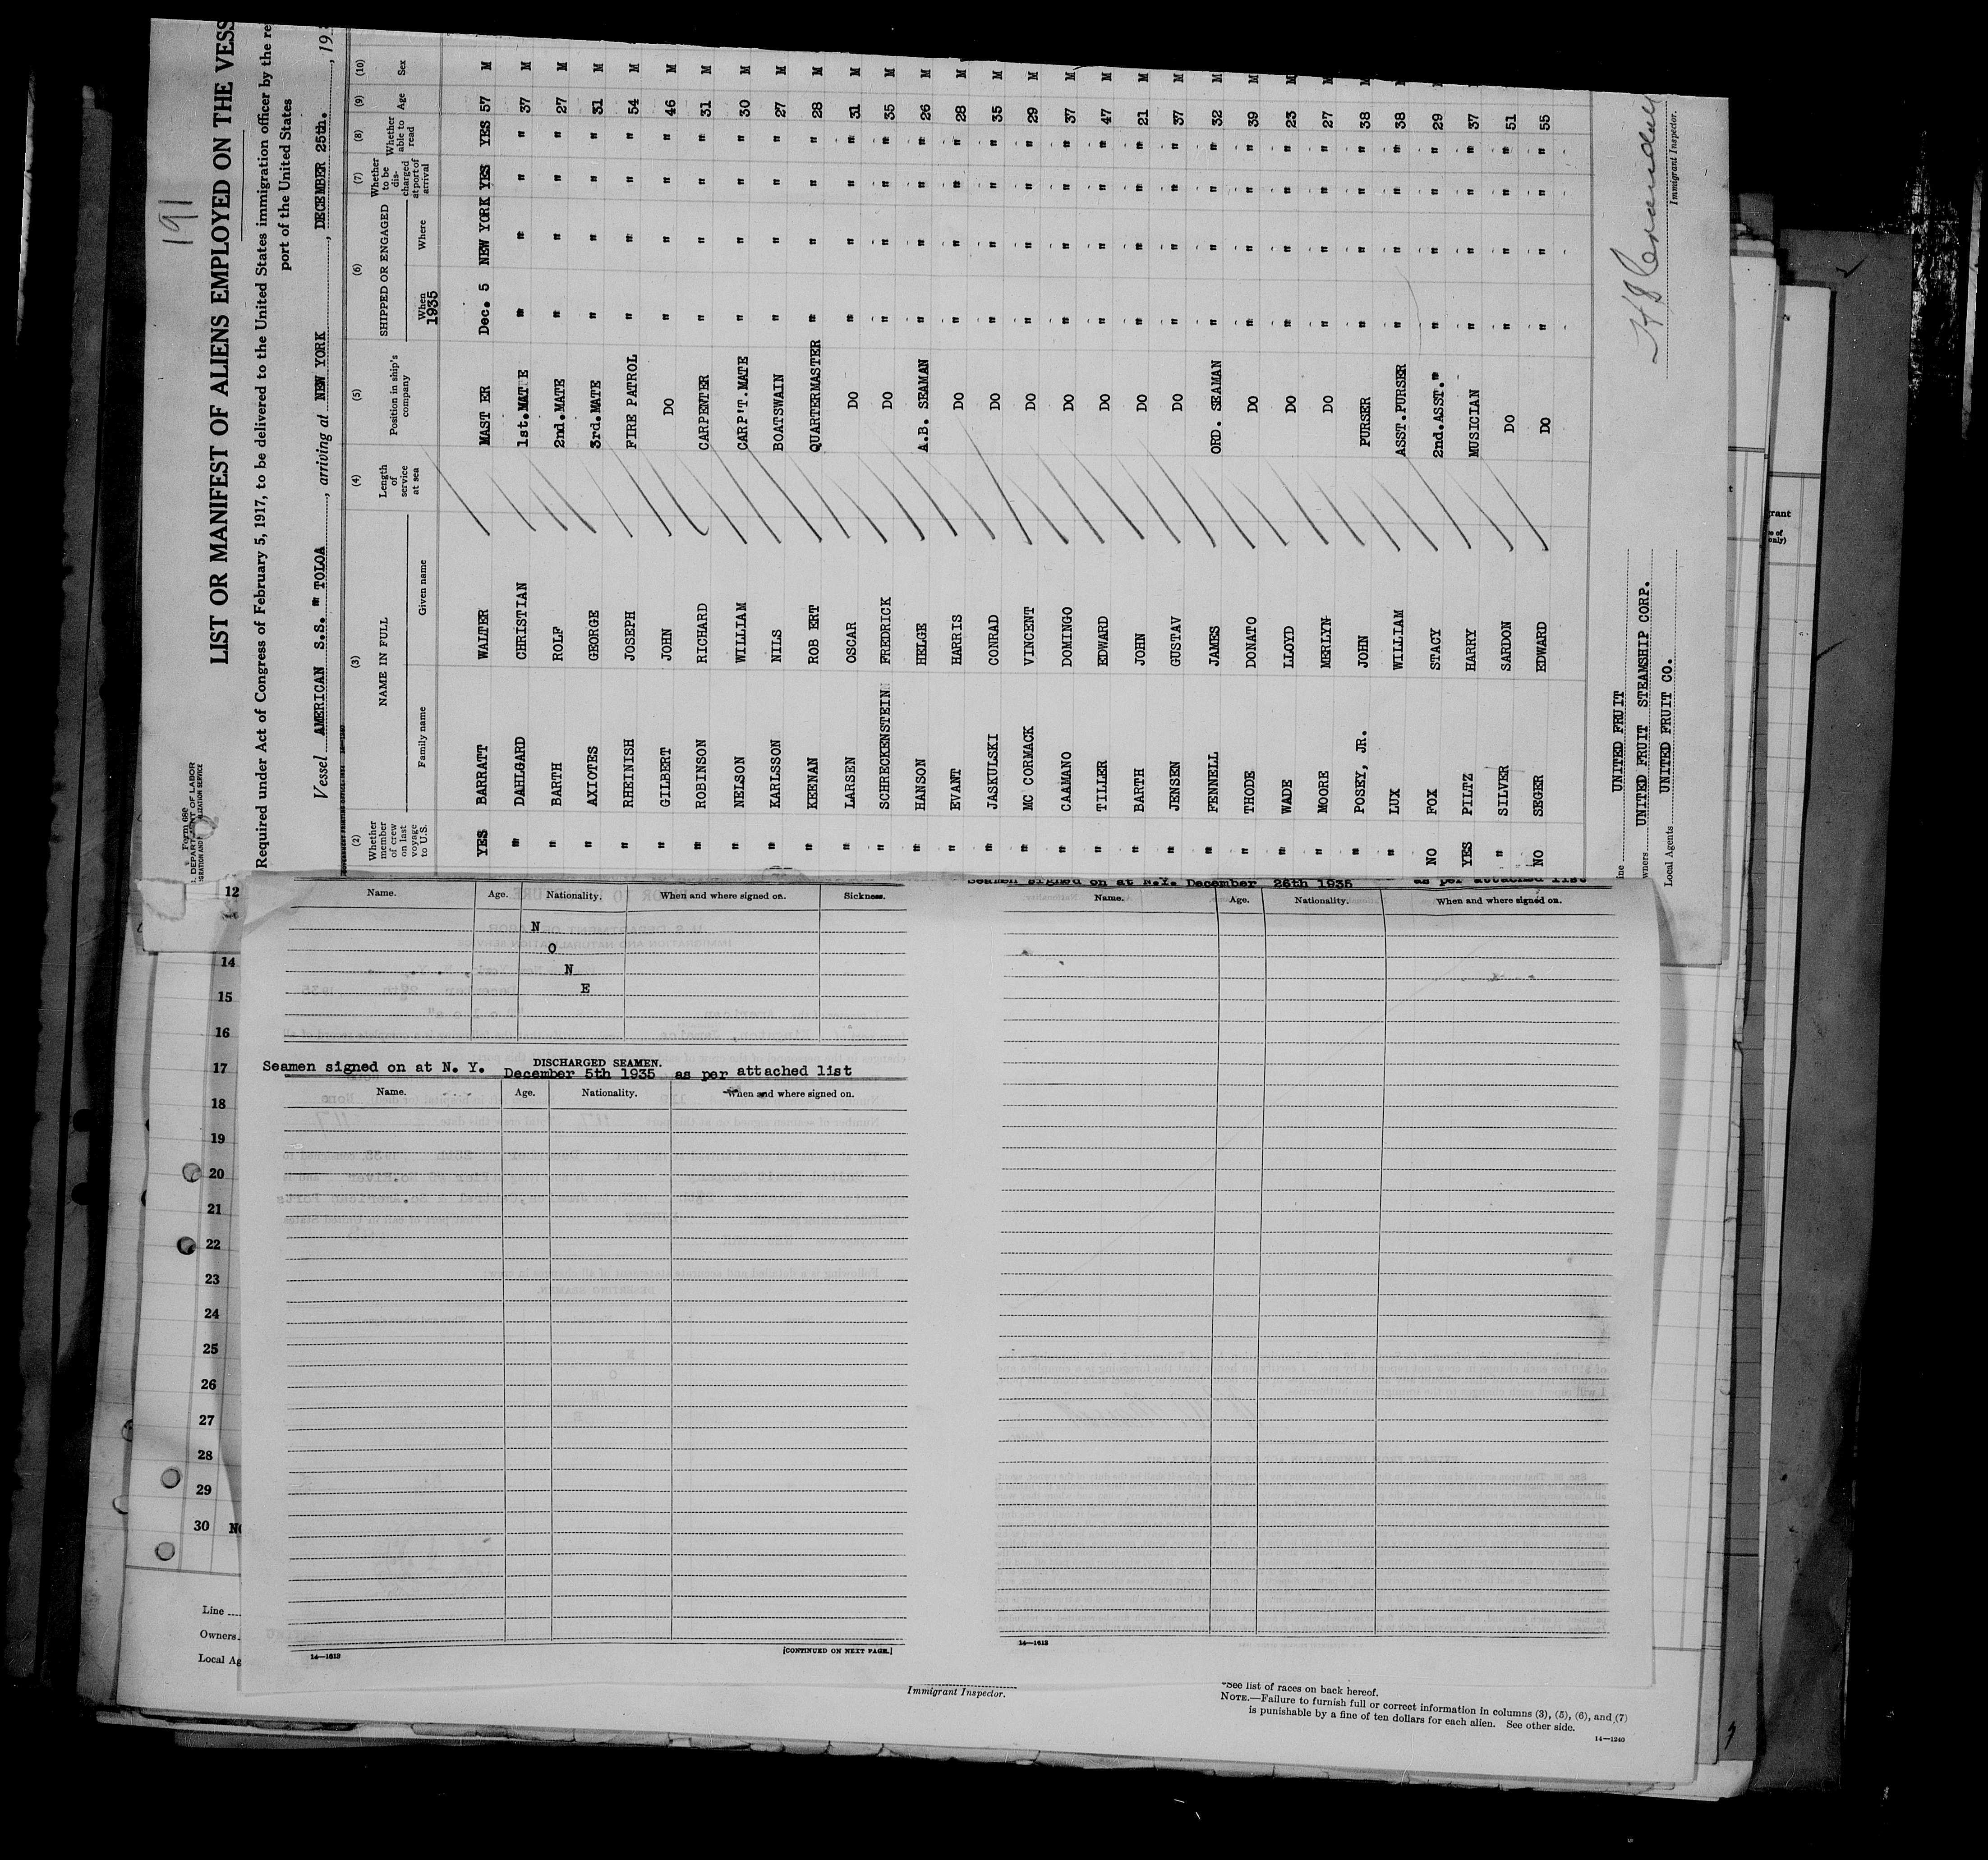 191
Form 680
U.S. DEPARTMENT OF LABOR
LIST OR MANIFEST OF ALIENS EMPLOYED ON THE VESS
Required under Act of Congress of February 5, 1917, to be delivered to the United States immigration officer by the re
port of the United States
Vessel AMERICAN S.S. " TOLOA , arriving at NEW YORK , DECEMBER 25th. , 193
(2) (3) (4) (5) (6) (7) (8) (9) (10)
Whether member of crew on last voyage to U.S. NAME IN FULL Family name Given name Length of service at sea Position in ship's company SHIPPED OR ENGAGED When 1935 Where Whether to be discharged at port of arrival Whether able to read Age Sex
YES BARRATT WALTER MAST ER Dec. 5 NEW YORK YES YES 57 M
" DAHLGARD CHRISTIAN 1st.MATE " " " " 37 M
" BARTH ROLF 2nd.MATE " " " " 27 M
" AXIOTES GEORGE 3rd.MATE " " " " 31 M
" RHEINISH JOSEPH FIRE PATROL " " " " 54 M
" GILBERT JOHN DO " " " " 46 M
" ROBINSON RICHARD CARPENTER " " " " 31 M
" NELSON WILLIAM CARP'T.MATE " " " " 30 M
" KARLSSON NILS BOATSWAIN " " " " 27 M
" KEENAN ROB ERT QUARTERMASTER " " " " 28 M
" LARSEN OSCAR DO " " " " 31 M
" SCHRECKENSTEIN FREDRICK DO " " " " 35 M
" HANSON HELGE A.B. SEAMAN " " " " 26 M
" EVANT HARRIS DO " " " " 28 M
" JASKULSKI CONRAD DO " " " " 35 M
" MC CORMACK VINCENT DO " " " " 29 M
" CAAMANO DOMINGO DO " " " " 37 M
" TILLER EDWARD DO " " " " 47 M
" BARTH JOHN DO " " " " 21 M
" JENSEN GUSTAV DO " " " " 37 M
" FENNELL JAMES ORD. SEAMAN " " " " 32 M
" THODE DONATO DO " " " " 39 M
" WADE LLOYD DO " " " " 23 M
" MOORE MERLYN DO " " " " 27 M
" POSEY, JR. JOHN PURSER " " " " 38 M
" LUX WILLIAM ASST.PURSER " " " " 38 M
NO FOX STACY 2nd.ASST." " " " " 29
YES PILTZ HARRY MUSICIAN " " " " 37
" SILVER SARDON DO " " " " 51
NO SEGER EDWARD DO " " " " 55
UNITED FRUIT
owners UNITED FRUIT STEAMSHIP CORP.
Local Agents UNITED FRUIT CO.
Immigrant Inspector.
12
14
15
16
17
18
19
20
21
22
23
24
25
26
27
28
29
30 NO
Line
Owners.
Local Ag
Name. Age. Nationality. When and where signed on. Sickness.
N
O
N
E
DISCHARGED SEAMEN.
Seamen signed on at N. Y. December 5th 1935 as per attached list
Name. Age. Nationality. When and where signed on.
14—1613
[CONTINUED ON NEXT PAGE.]
Seamen signed on at N.Y. December 26th 1935 as per attached list
Name. Age. Nationality. When and where signed on.
14—1613
Immigrant Inspector.
*See list of races on back hereof.
NOTE.—Failure to furnish full or correct information in columns (3), (5), (6), and (7)
is punishable by a fine of ten dollars for each alien. See other side.
14—1240